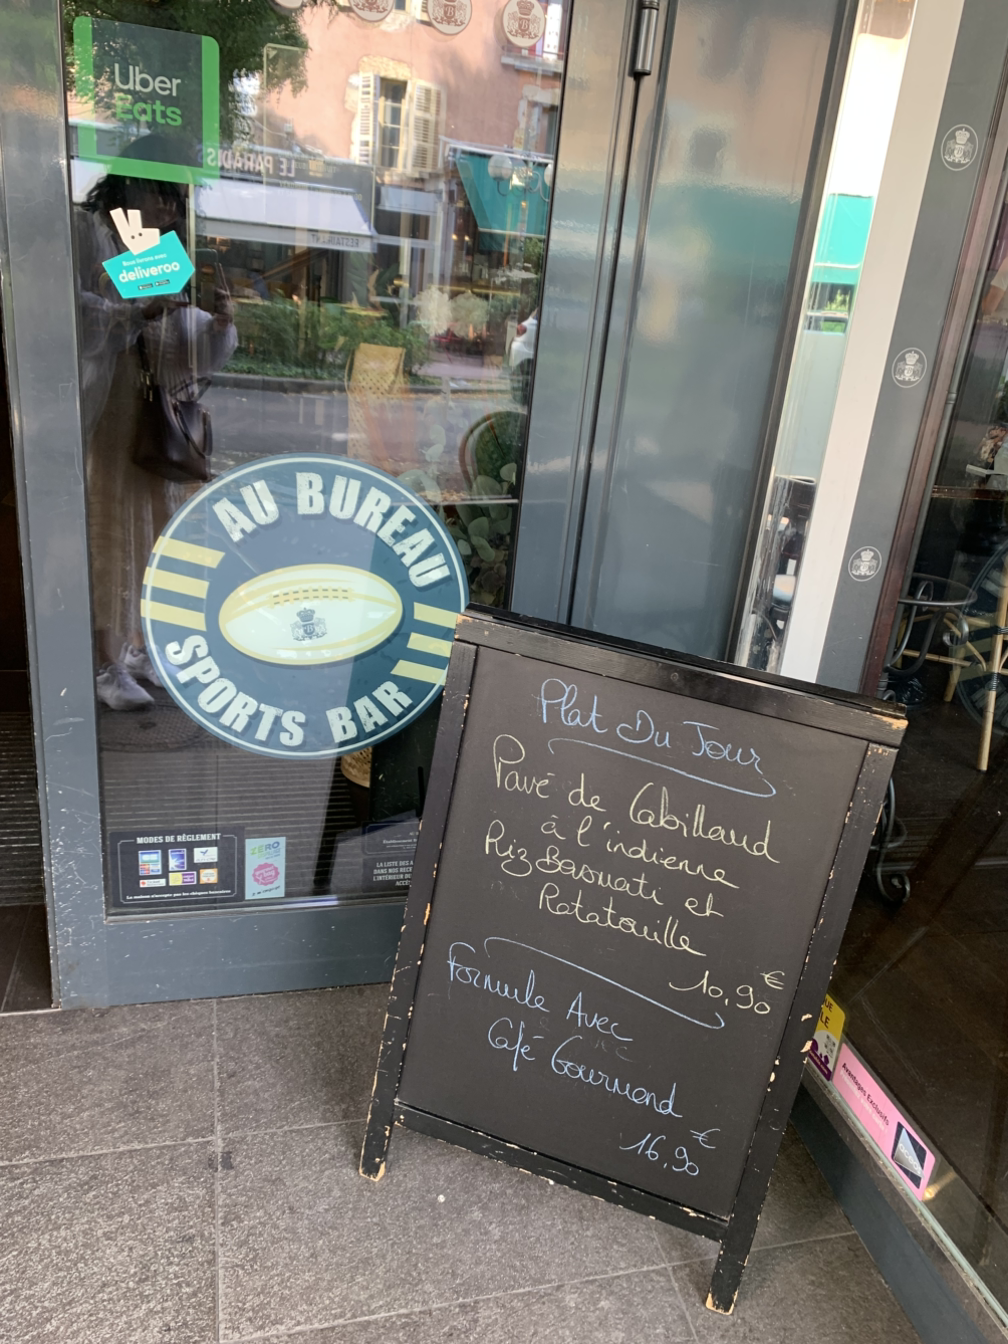 Uber
Eats
LE PARADIS
RESTAURANT
Nous livrons avec
deliveroo
AU BUREAU
SPORTS BAR
MODES DE RÈGLEMENT
ZERO
Plat Du Jour
Pavé de Cabillaud
à l'indienne
Riz Basmati et
Ratatouille
10,90€
Formule Avec
Café Gourmand
16,90€
Avantages Exclusifs